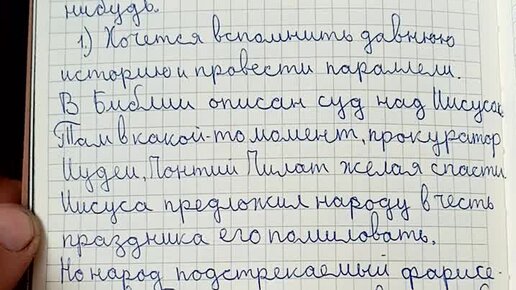 нибудь.
1.) Хочется вспомнить давнюю
историю и провести параллели.
В Библии описан суд над Иисусом.
Там в какой-то момент, прокуратор
Иудеи, Понтий Пилат желая спасти
Иисуса предложил народу в честь
праздника его помиловать.
Но народ подстрекаемый фарисе-